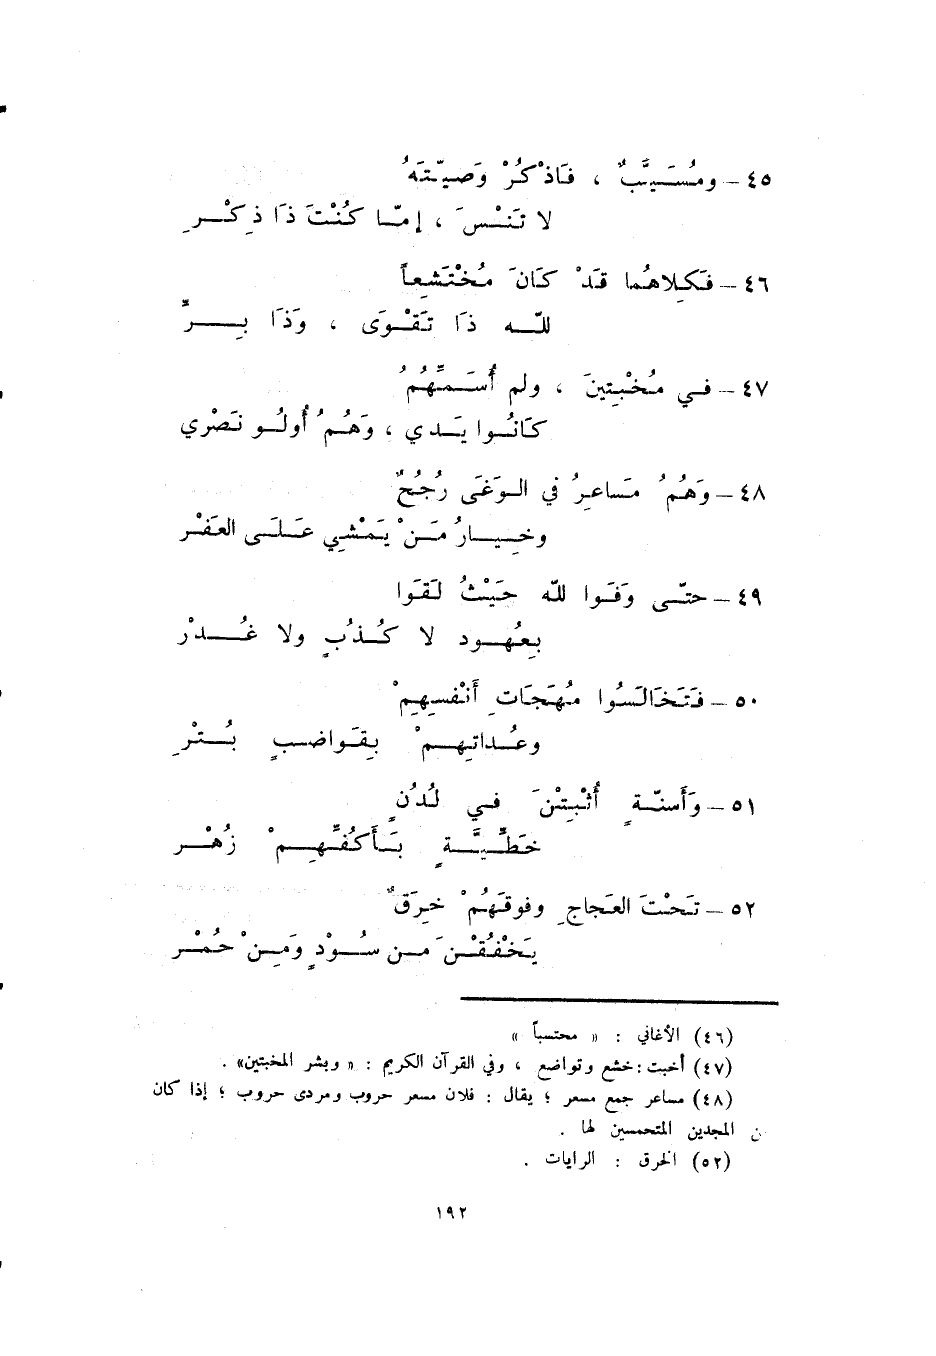 ٤٥ – ومُسَيَّبٌ ، فَاذْكُرْ وَصيّتَهُ
لا تَنْسَ ، إمّا كُنْتَ ذَا ذِكْرِ
٤٦ – فَكِلاهُما قَدْ كَانَ مُخْتَشِعاً
للّه ذَا تَقْوَى ، وَذَا بِرِّ
٤٧ – في مُخْبِتِينَ ، ولم أُسَمِّهُمُ
كَانُوا يَدي ، وَهُمُ أُولُو نَصْرِي
٤٨ – وَهُمُ مَساعِرُ في الوَغَى رُجُحٌ
وخِيارُ مَنْ يَمْشِي عَلَى العَفْرِ
٤٩ – حتّى وَفَوا للّه حَيْثُ لَقَوا
بِعُهودِ لا كُذُبٍ ولا غُدْرِ
٥٠ – فَتَخَالَسُوا مُهَجَاتِ أَنْفسِهِمْ
وعُداتِهِمْ بِقَواضبٍ بُتْرِ
٥١ – وَأَسنّةٍ أُثْبِتْنَ في لُدُنٍ
خَطِّيَّةٍ بَأَكُفِّهِمْ زُهْرِ
٥٢ – تَحْتَ العَجاجِ وفوقَهُمْ خِرَقٌ
يَخْفُقْنَ من سُوْدٍ وَمِنْ حُمْرِ
(٤٦) الأغاني : « محتسباً »
(٤٧) أخبت : خشع وتواضع ، وفي القرآن الكريم : « وبشر المخبتين» .
(٤٨) مساعر جمع مسعر ؛ يقال : فلان مسعر حروب ومردى حروب ؛ إذا كان
ن المجدين المتحمسين لها .
(٥٢) الخرق : الرايات .
١٩٢